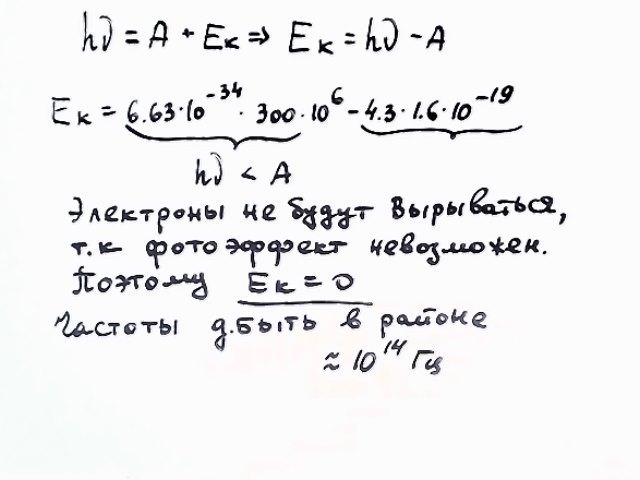 hν = A + Eк ⇒ Eк = hν - A
Eк = 6.63·10⁻³⁴ · 300·10⁶ - 4.3·1.6·10⁻¹⁹
hν < A
Электроны не будут вырываться,
т.к фотоэффект невозможен.
Поэтому Eк = 0
Частоты д.быть в районе
≈ 10¹⁴ Гц